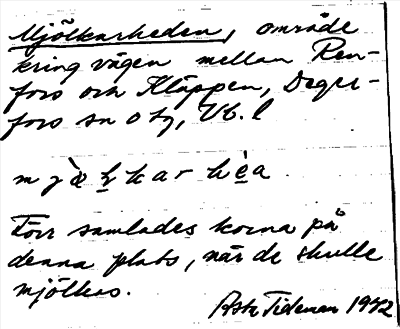 Mjölkarheden, område
kring vägen mellan Ren-
fors och Kläppen, Deger-
fors sn o tg, Vb. l
mjö̀l̥kar-hèa.
Förr samlades korna på
denna plats, när de skulle
mjölkas.
Tideman 1942